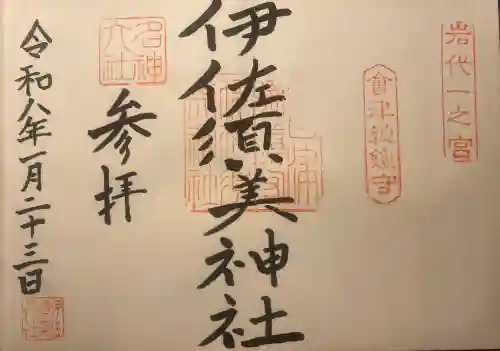 岩代一之宮
會津総鎮守
伊佐須美神社
参拝
名神大社
令和八年一月二十三日